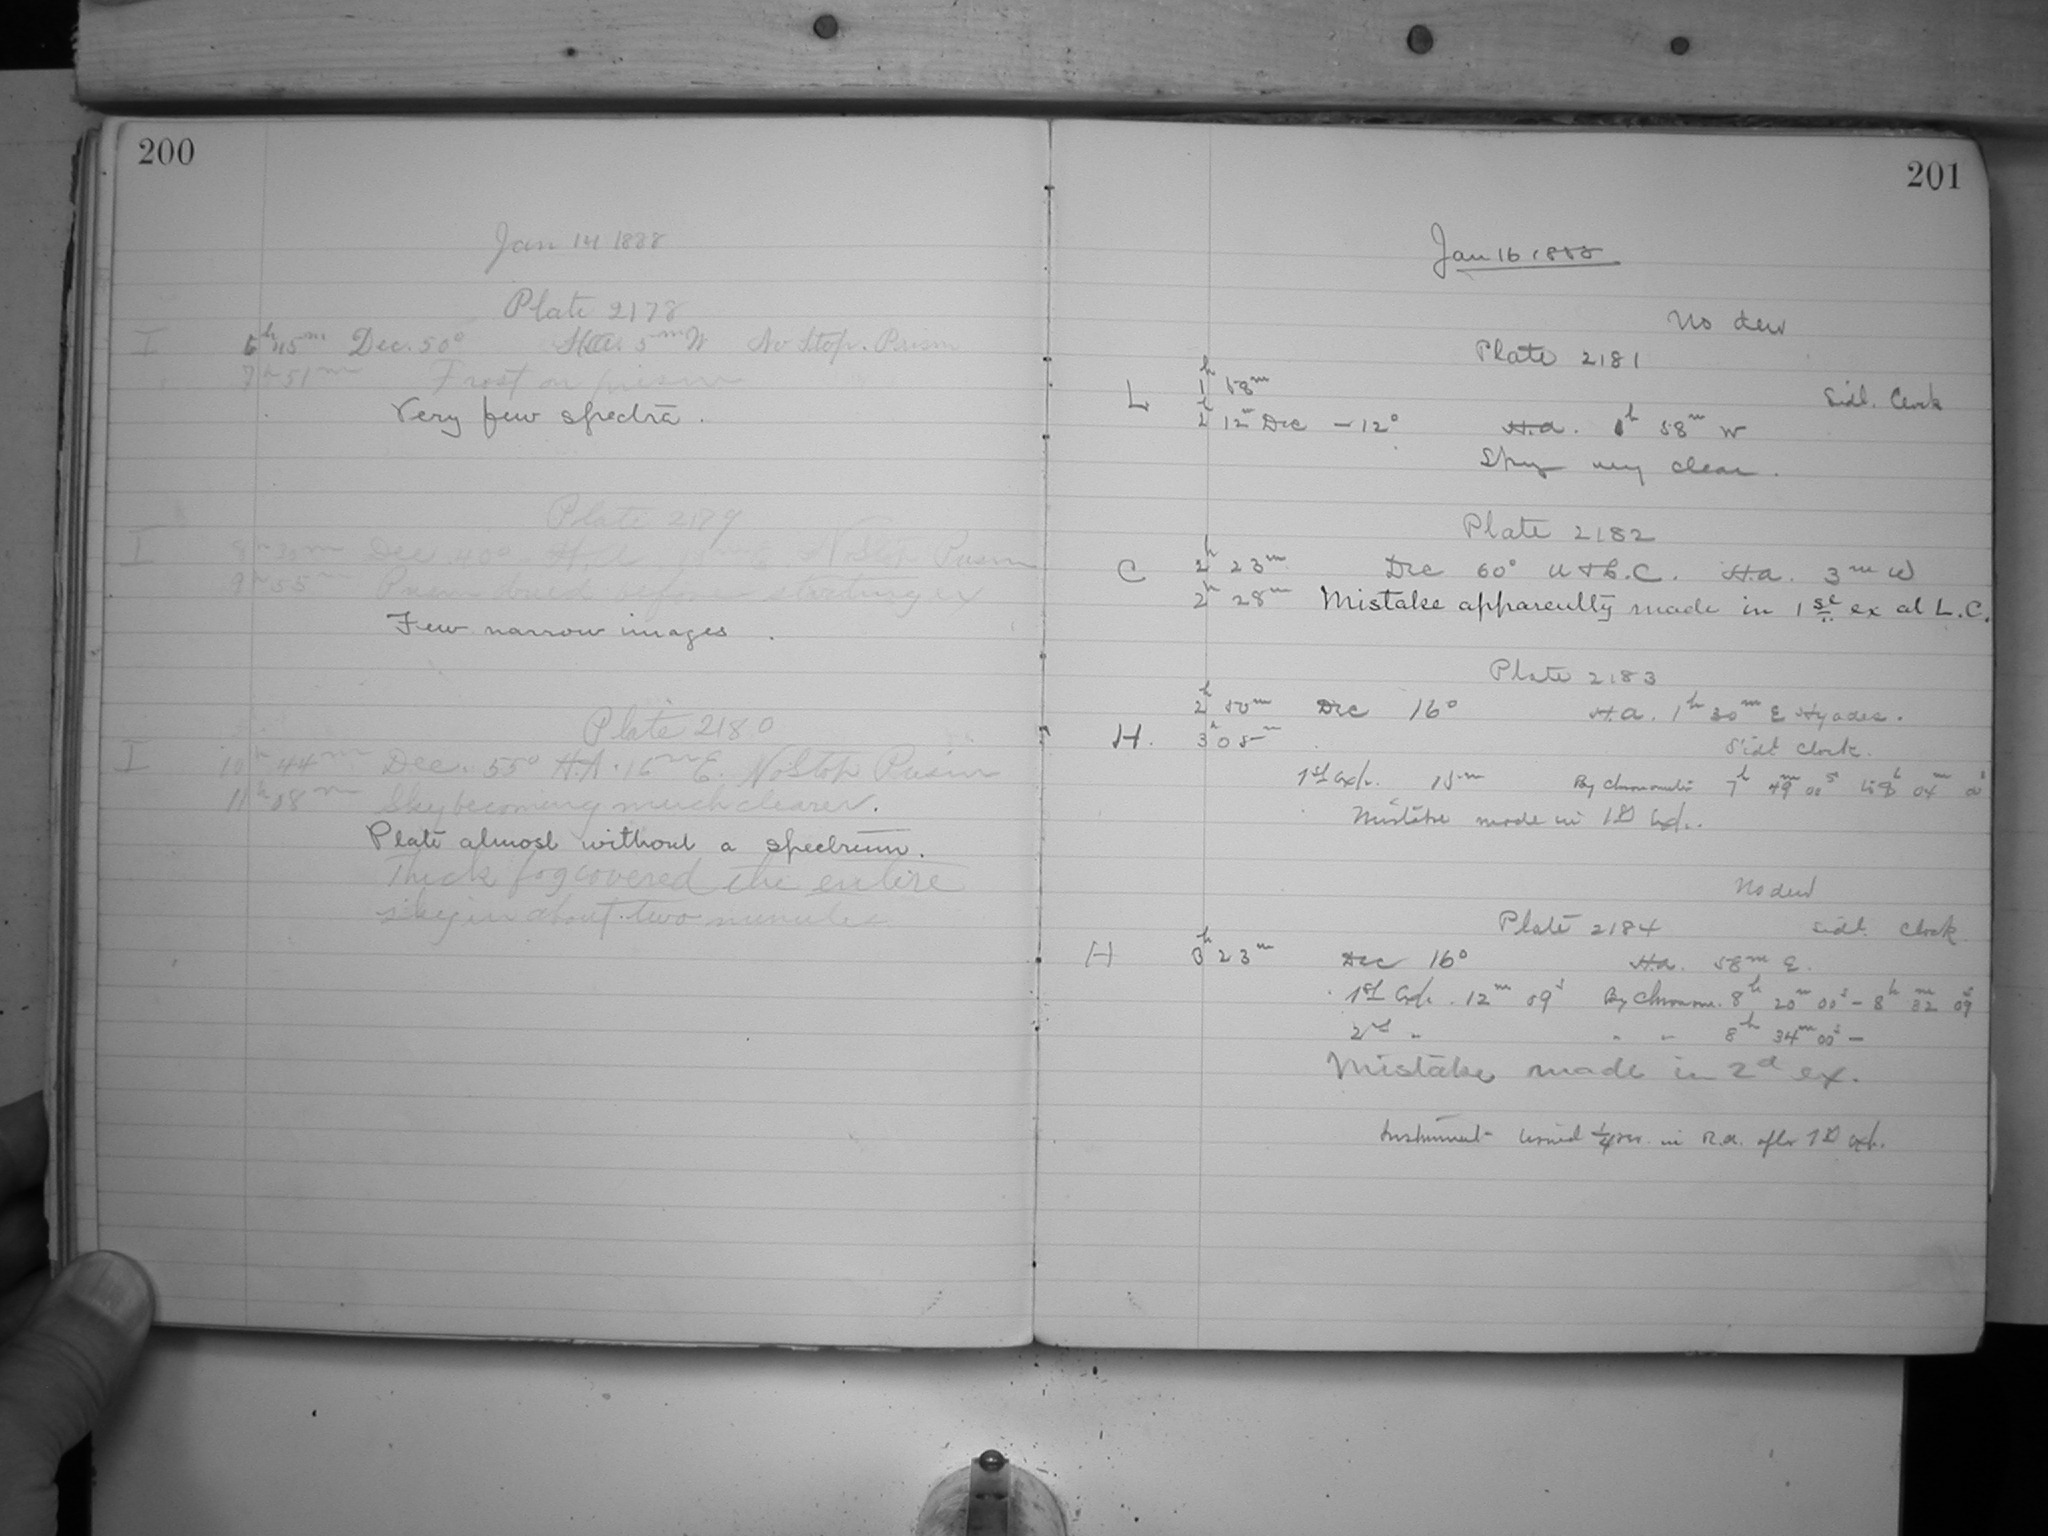 200
Jan 14 1888
Plate 2178
I 6h 45m Dec. 50° H.A. 5m W No Stop. Prism
7h 51m Frost on prism
Very few spectra.
Plate 2179
I 8h 30m Dec 40° H.A. E No Stop Prism
9h 55m Prism dried before starting ex
Few narrow images.
Plate 2180
I 10h 44m Dec. 55° H.A. 16m E. No Stop Prism
11h 18m Sky becoming much clearer.
Plate almost without a spectrum.
Thick fog covered the entire
sky in about two minutes
201
Jan 16 1888
No dew
Plate 2181
1h 58m Sidl. Clock
L 2h 12m Dec -12° H.a. 1h 58m W
Sky very clear.
Plate 2182
C 2h 23m Dec 60° U & L.C. H.a. 3m W
2h 28m Mistake apparently made in 1st ex at L.C.
Plate 2183
2h 50m Dec 16° H.a. 1h 30m E Hyades.
H. 3h 05m Sidl Clock.
1st Exp. 15m By Chronometer 7h 49m 00s to 8h 04m 0s
Mistake made in 1st Exp.
No dew
Plate 2184 Sidl. Clock
H 3h 23m Dec 16° H.a. 58m E.
1st Exp. 12m 09s By Chronom. 8h 20m 00s - 8h 32m 09s
2nd " " " 8h 34m 00s -
Mistake made in 2d ex.
Instrument turned 1/4 rev. in R.a. after 1st exp.